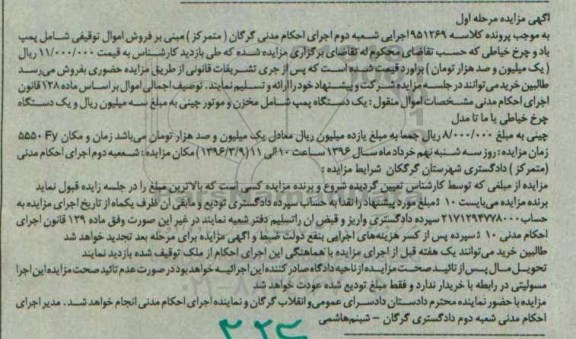 آگهی مزایده مرحله اول
به موجب پرونده کلاسه ۹۵۱۲۶۹ اجرایی شعبه دوم اجرای احکام مدنی گرگان ( متمرکز ) مبنی بر فروش اموال توقیفی شامل پمپ
باد و چرخ خیاطی که حسب تقاضای محکوم له تقاضای برگزاری مزایده شده که طی بازدید کارشناس به قیمت ۱۱/۰۰۰/۰۰۰ ریال
( یک میلیون و صد هزار تومان ) براورد قیمت شده است که پس از جری تشریفات قانونی از طریق مزایده حضوری بفروش می رسد
طالبین خرید می توانند در جلسه مزایده شرکت و پیشنهاد خود را ارائه و تسلیم نمایند . توصیف اجمالی اموال بر اساس ماده ۱۲۸ قانون
اجرای احکام مدنی مشخصات اموال منقول : یک دستگاه پمپ شامل مخزن و موتور چینی به مبلغ سه میلیون ریال و یک دستگاه
چرخ خیاطی یا ما تا مدل
۵۵۵۰ Fy چینی به مبلغ ۸/۰۰۰/۰۰۰ ریال جمعا به مبلغ یازده میلیون ریال معادل یک میلیون و صد هزار تومان می‌باشد زمان و مکان
زمان مزایده : روز سه شنبه نهم خرداد ماه سال ۱۳۹۶ ساعت ۱۰ الی ۱۱ (۱۳۹۶/۳/۹) مکان مزایده : شعبه دوم اجرای احکام مدنی
(متمرکز ) دادگستری شهرستان گرگکان شرایط مزایده :
مزایده از مبلغی که توسط کارشناس تعیین گردیده شروع و برنده مزایده کسی است که بالاترین مبلغ را در جلسه زایده قبول نماید
برنده مزایده می‌بایست ۱۰ ٪ مبلغ مورد پیشنهاد را نقدا به حساب سپرده دادگستری تودیع و مابقی آن ظرف یکماه از تاریخ اجرای مزایده به
حساب ۲۱۷۱۲۹۴۷۷۸۰۰۰ سپرده دادگستری واریز و قبض ان راتسلیم دفتر شعبه نمایند در غیر این صورت وفق ماده ۱۲۹ قانون اجرای
احکام مدنی ۱۰ ٪ سپرده پس از کسر هزینه‌های اجرایی بنفع دولت ضبط و آگهی مزایده برای مرحله بعد تجدید خواهد شد
طالبین خرید می توانند یک هفته قبل از اجرای مزایده با هماهنگی این اجرای احکام از ملک توقیف شده بازدید نمایند
تحویل مال پس از تائید صحت مزایده از ناحیه دادگاه صادر کننده این اجرائیه خواهد بود در صورت عدم تائید صحت مزایده این اجرا
مسولیتی در رابطه با خریدار ندارد و فقط مبلغ تودیع شده عودت خواهد شد
مزایده با حضور نماینده محترم دادستان دادسرای عمومی و انقلاب گرگان و نماینده اجرای احکام مدنی انجام خواهد شد . مدیر اجرای
احکام مدنی شعبه دوم دادگستری گرگان – شبنم هاشمی